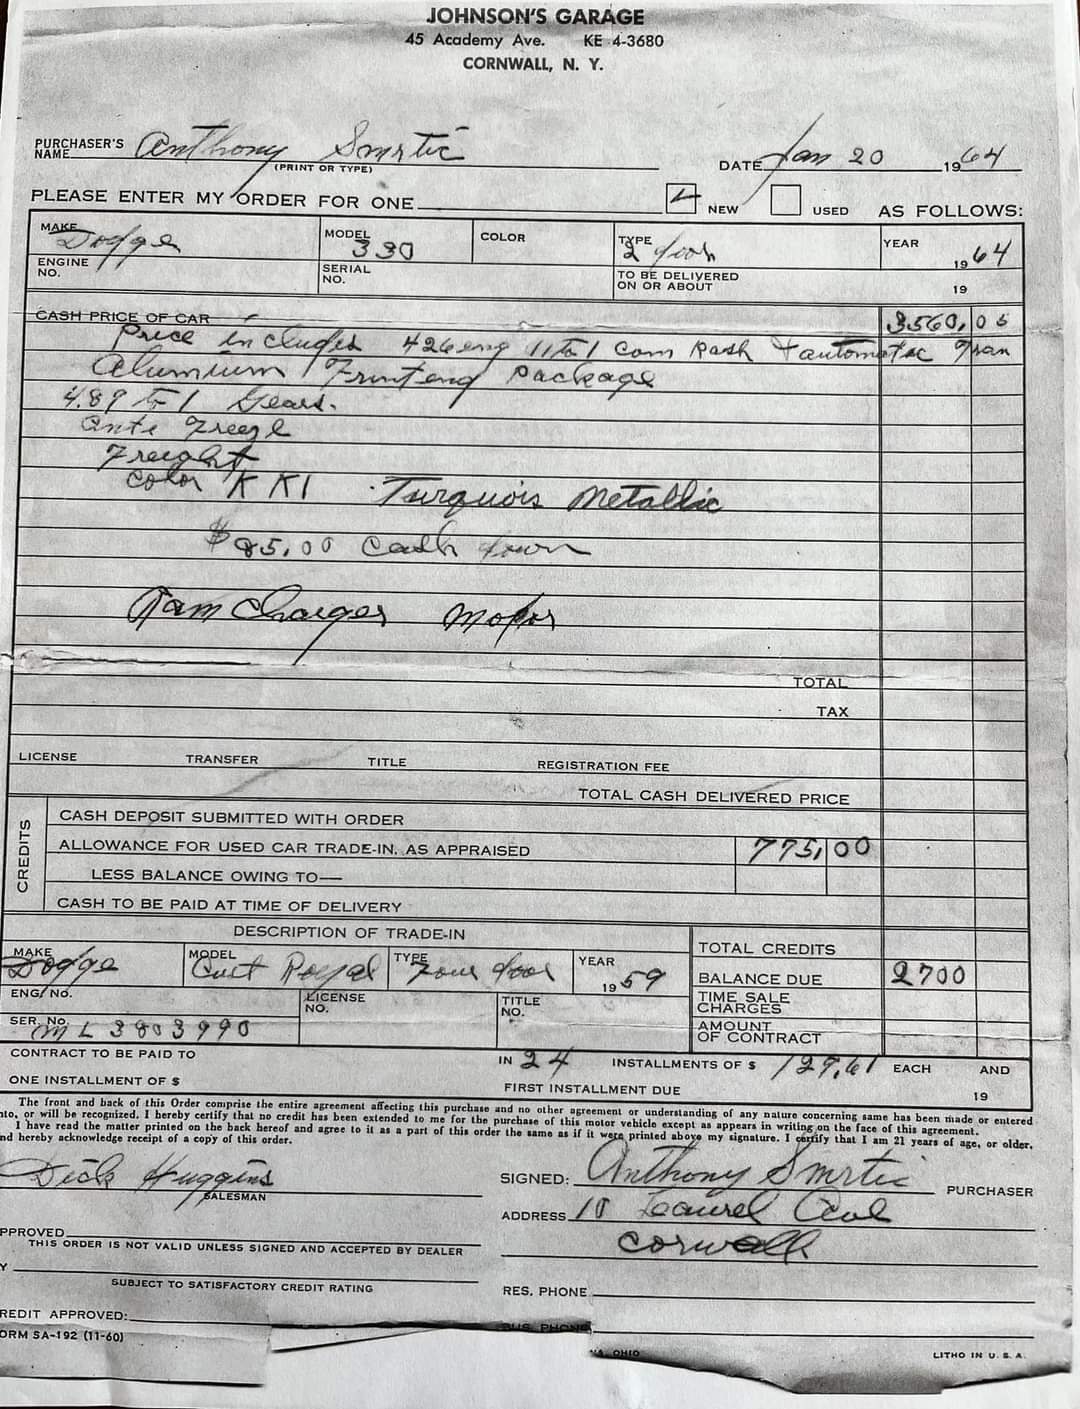 JOHNSON'S GARAGE
45 Academy Ave. KE 4-3680
CORNWALL, N. Y.
PURCHASER'S NAME Anthony Smrtic
(PRINT OR TYPE)
DATE Jan 20 1964
PLEASE ENTER MY ORDER FOR ONE NEW USED AS FOLLOWS:
MAKE Dodge MODEL 330 COLOR TYPE 2 door YEAR 1964
ENGINE NO. SERIAL NO. TO BE DELIVERED ON OR ABOUT 19
CASH PRICE OF CAR 3560.05
Price includes 426 eng 11 to 1 com Rash + automatic Tran
Alumium Frunt eng package
4.89 to 1 Gears.
Ante Freeze
Freight
Color K K1 Turquois Metallic
$85.00 Cash down
Ram Charger Motor
TOTAL
TAX
LICENSE TRANSFER TITLE REGISTRATION FEE
TOTAL CASH DELIVERED PRICE
CREDITS
CASH DEPOSIT SUBMITTED WITH ORDER
ALLOWANCE FOR USED CAR TRADE-IN, AS APPRAISED 775.00
LESS BALANCE OWING TO—
CASH TO BE PAID AT TIME OF DELIVERY
DESCRIPTION OF TRADE-IN TOTAL CREDITS
MAKE Dodge MODEL Cust Royal TYPE Four door YEAR 1959 BALANCE DUE 2700
ENG. NO. LICENSE NO. TITLE NO. TIME SALE CHARGES
SER. NO. M L 3803990 AMOUNT OF CONTRACT
CONTRACT TO BE PAID TO IN 24 INSTALLMENTS OF $ 129.61 EACH AND
ONE INSTALLMENT OF $ FIRST INSTALLMENT DUE 19
The front and back of this Order comprise the entire agreement affecting this purchase and no other agreement or understanding of any nature concerning same has been made or entered
nto, or will be recognized. I hereby certify that no credit has been extended to me for the purchase of this motor vehicle except as appears in writing on the face of this agreement.
I have read the matter printed on the back hereof and agree to it as a part of this order the same as if it were printed above my signature. I certify that I am 21 years of age, or older,
nd hereby acknowledge receipt of a copy of this order.
Dick Huggins
SALESMAN
SIGNED: Anthony Smrtic PURCHASER
ADDRESS 10 Laurel Ave
Cornwall
PPROVED
THIS ORDER IS NOT VALID UNLESS SIGNED AND ACCEPTED BY DEALER
Y
SUBJECT TO SATISFACTORY CREDIT RATING
RES. PHONE
REDIT APPROVED:
BUS. PHONE
ORM SA-192 (11-60)
OHIO
LITHO IN U. S. A.